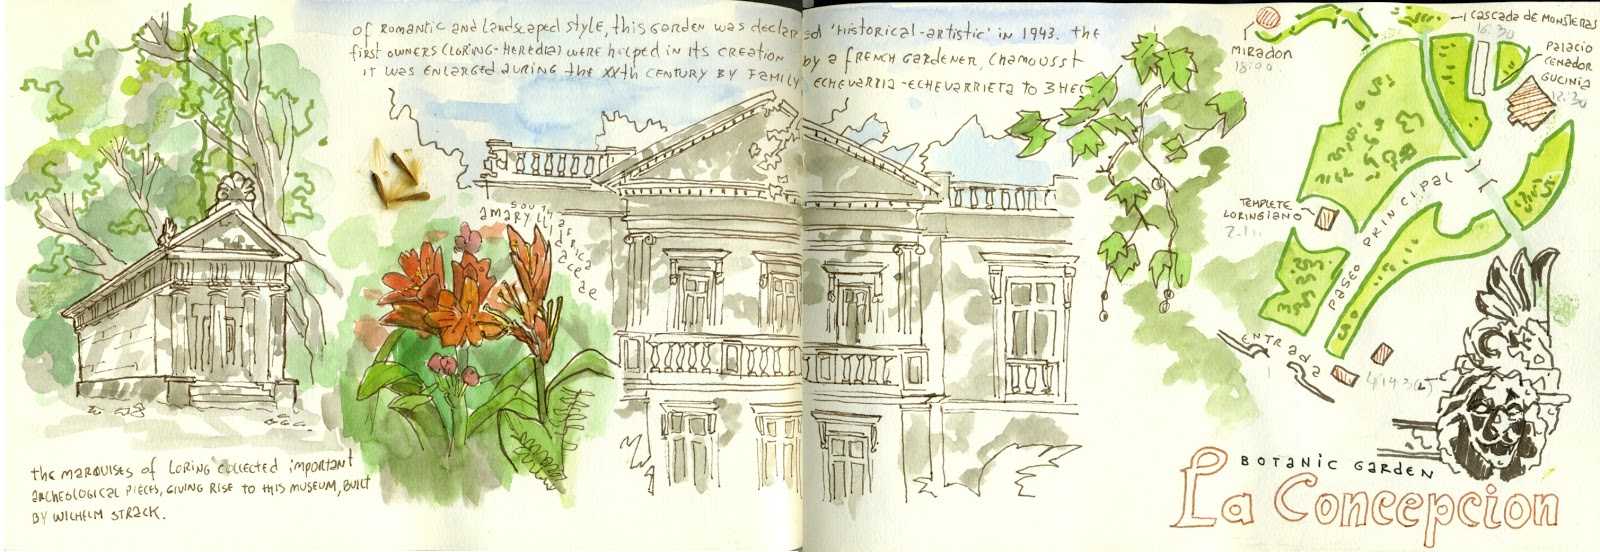 of romantic and landscaped style, this garden was declared 'Historical-artistic' in 1943. The
first owners (LORING-HEREDIA) were helped in its creation by a FRENCH GARDENER, CHAMOUSST
IT WAS ENLARGED DURING THE XXTH CENTURY BY FAMILY ECHEVARRIA-ECHEVARRIETA TO 3 HEC
the MARQUISES of LORING collected important
ARCHEOLOGICAL PIECES, GIVING RISE TO THIS MUSEUM, BUILT
BY WILHELM STRACK.
SOUTH AFRICA
amaryllidaceae
MIRADOR
18:00
CASCADA DE MONSTERAS
18:30
PALACIO
CENADOR
GUCINIA
12:30
TEMPLETE
LORINGIANO
PASEO PRINCIPAL
ENTRADA
BOTANIC GARDEN
La Concepcion